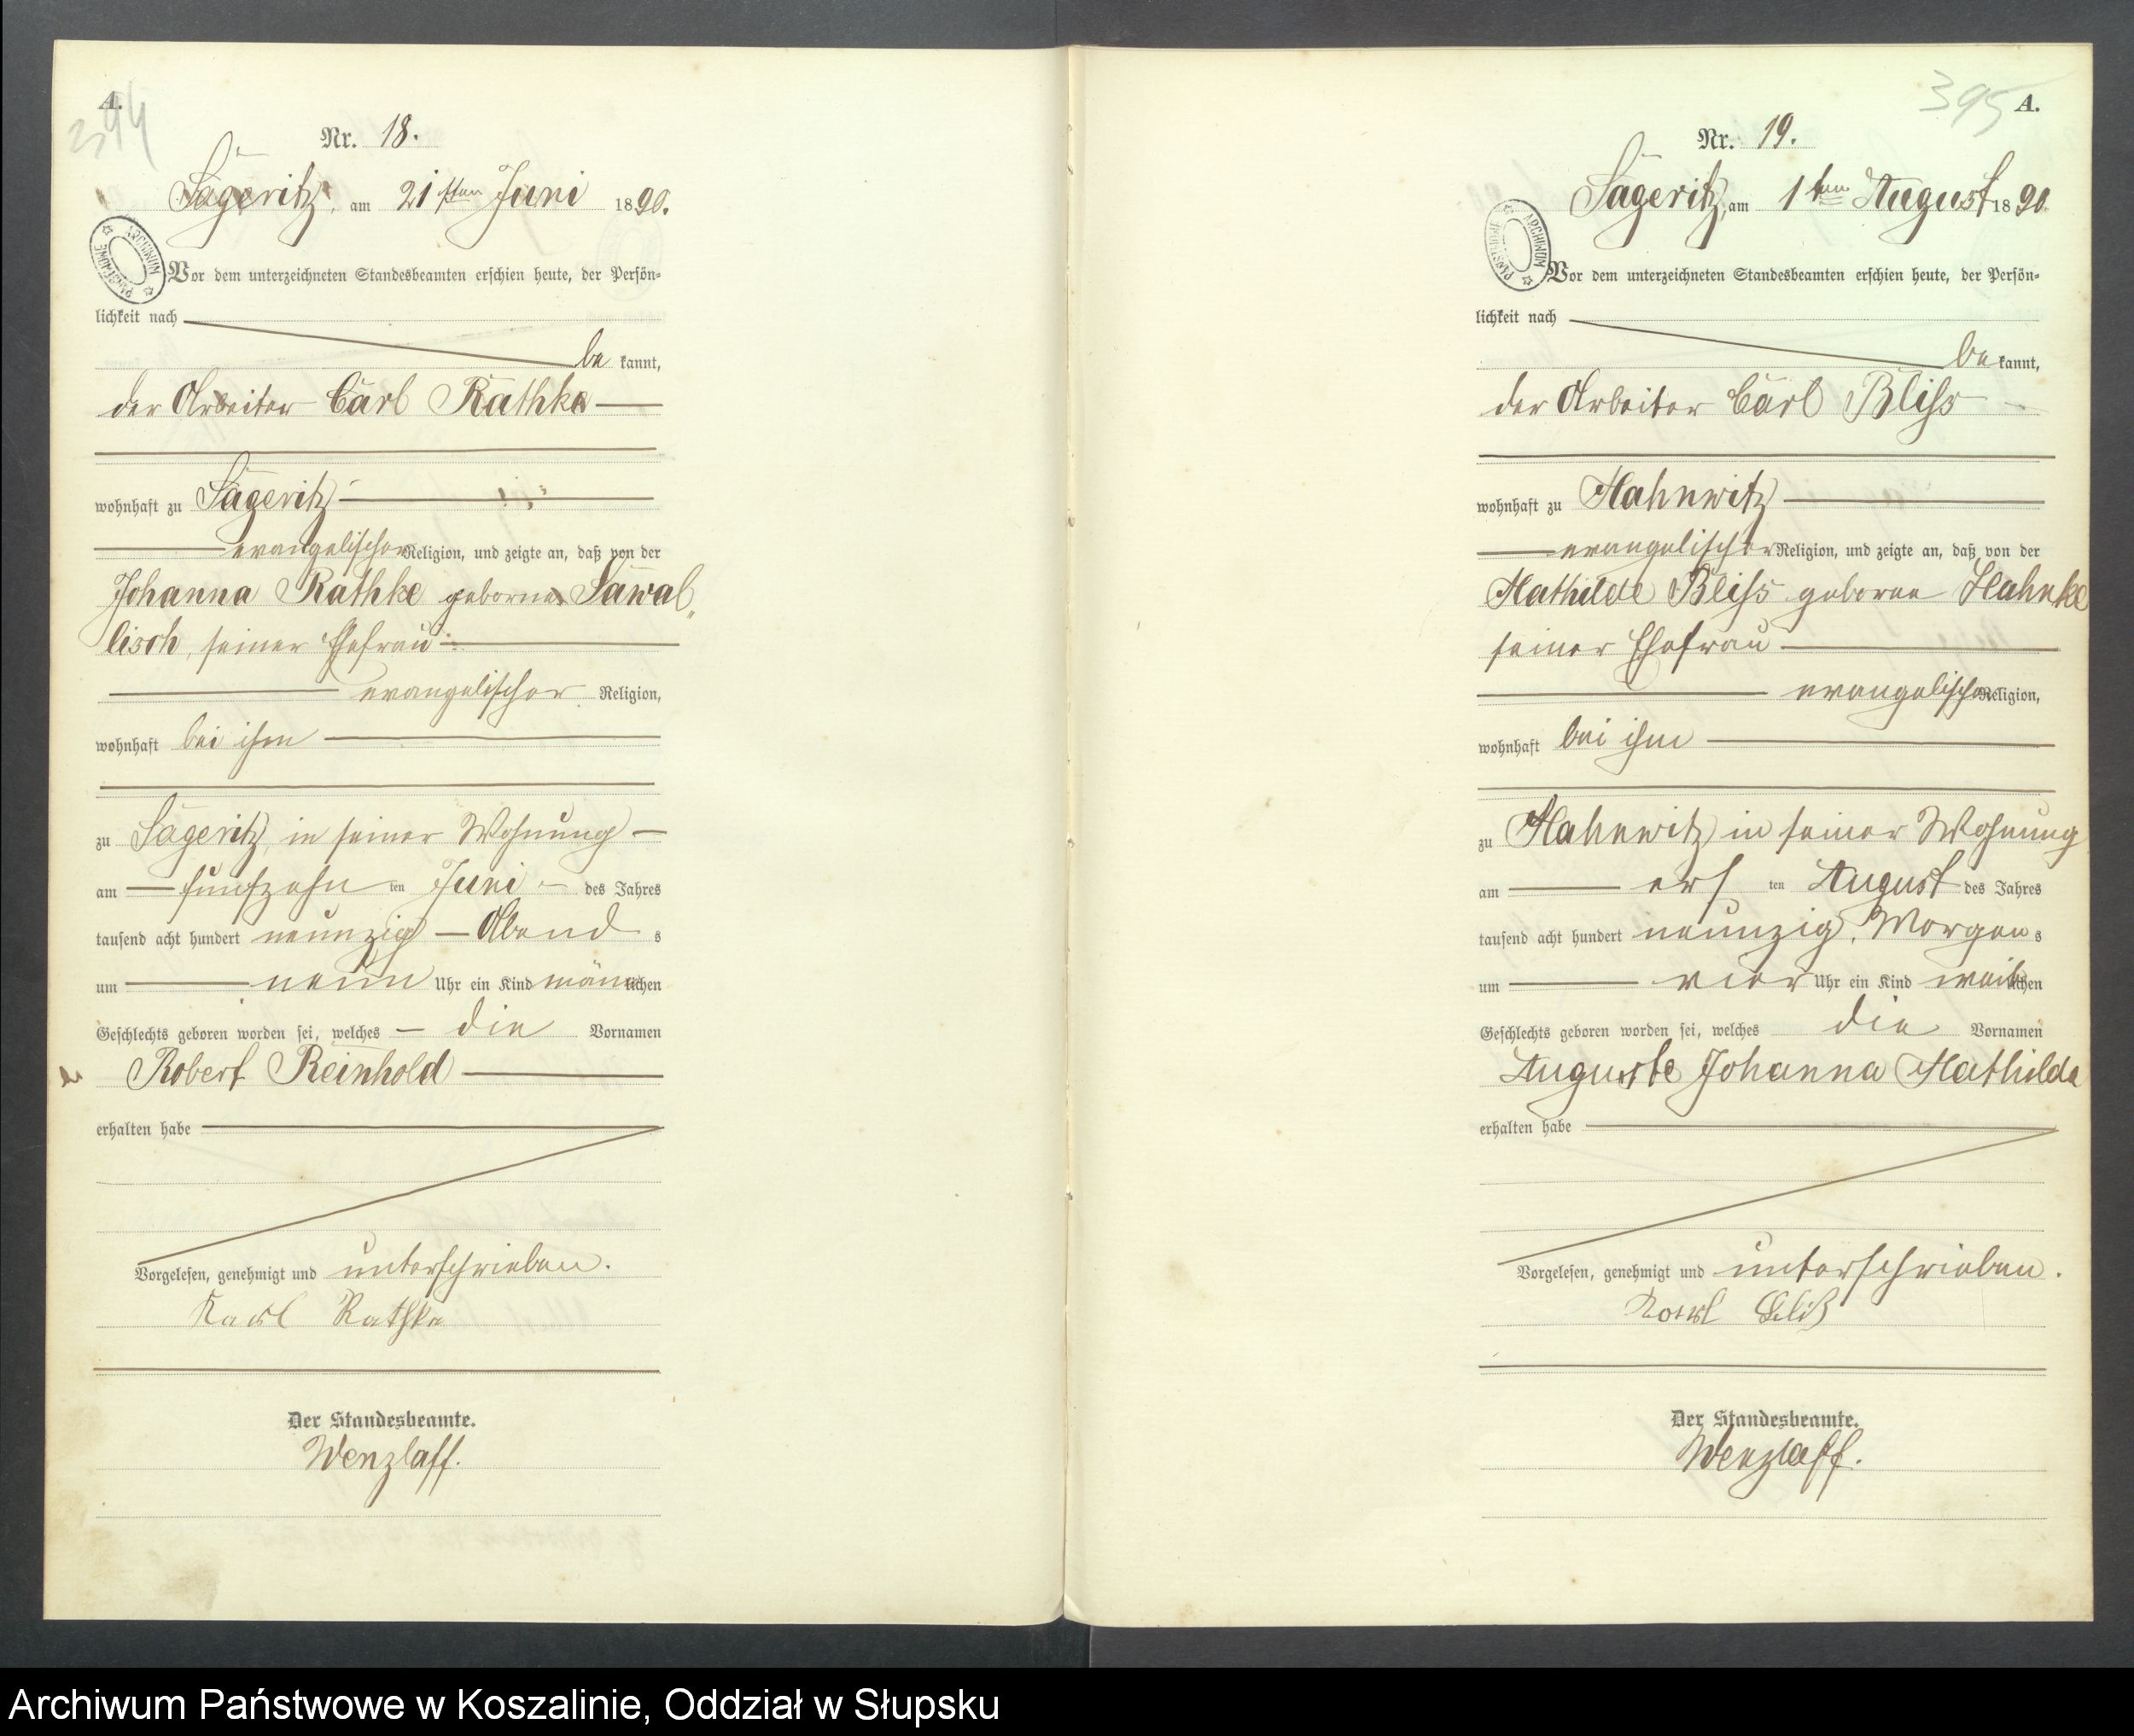 A.
394
Nr. 18.
Sageritz, am 21sten Juni 1890.
Vor dem unterzeichneten Standesbeamten erschien heute, der Persön-
lichkeit nach
be kannt,
der Arbeiter Carl Rathke
wohnhaft zu Sageritz
evangelischer Religion, und zeigte an, daß von der
Johanna Rathke geborne Sawal-
lisch, seiner Ehefrau
evangelischer Religion,
wohnhaft bei ihm
zu Sageritz, in seiner Wohnung
am fünfzehn ten Juni des Jahres
tausend acht hundert neunzig Abend s
um neun Uhr ein Kind männlichen
Geschlechts geboren worden sei, welches die Vornamen
Robert Reinhold
erhalten habe
Vorgelesen, genehmigt und unterschrieben.
Karl Rathke
Der Standesbeamte.
Wenzlaff.
395 A.
Nr. 19.
Sageritz, am 1ten August 1890.
Vor dem unterzeichneten Standesbeamten erschien heute, der Persön-
lichkeit nach
be kannt,
der Arbeiter Carl Bliss
wohnhaft zu Mahnwitz
evangelischer Religion, und zeigte an, daß von der
Mathilde Bliss geborne Hahnke
seiner Ehefrau
evangelischer Religion,
wohnhaft bei ihm
zu Mahnwitz in seiner Wohnung
am ers ten August des Jahres
tausend acht hundert neunzig, Morgen s
um vier Uhr ein Kind weiblichen
Geschlechts geboren worden sei, welches die Vornamen
Auguste Johanna Mathilde
erhalten habe
Vorgelesen, genehmigt und unterschrieben.
Karl Bliß
Der Standesbeamte.
Wenzlaff.
ARCHIWUM PAŃSTWOWE
ARCHIWUM PAŃSTWOWE
Archiwum Państwowe w Koszalinie, Oddział w Słupsku